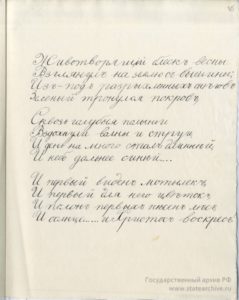 Животворящий блескъ весны
Взглянулъ на землю вышины;
Изъ-подъ разрыхленныхъ снѣговъ
Зеленый тронулся покровъ

Сквозь голубыя
волны и струи
И день на много сталъ длиннѣй,
И небо дальнее синѣй....

И первый виденъ мотылекъ
И первый для него цвѣтокъ
И полонъ первыхъ пѣсенъ лѣсъ
И солнце..... и Христосъ воскресъ
Государственный архив РФ
www.statearchive.ru